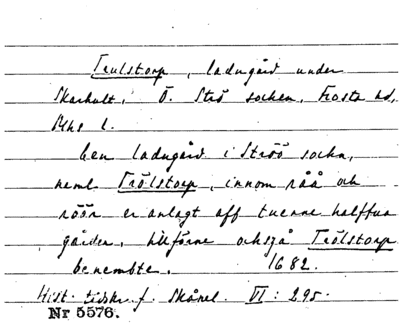 Trulstorp, ladugård under
Skarhult, Ö. Strö socken, Frosta hd,
Mhs l.
Een ladugård i Ströö sochn,
neml. Trölstorp, innom råå och
röör er anlagt aff tuenne halffua
gårder, tillförne ochså Trölstorp
benembte. 1682.
Hist. tidskr. f. Skånel. VI: 295.
Nr 5576.